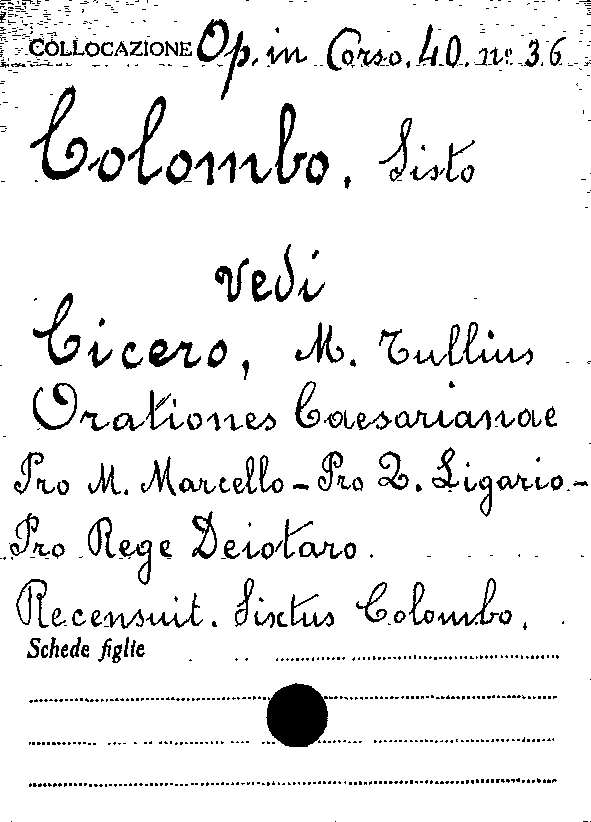 COLLOCAZIONE Op. in Corso. 40. nº 36
Colombo, Sisto
vedi
Cicero, M. Tullius
Orationes Caesarianae
Pro M. Marcello - Pro Q. Ligario. -
Pro Rege Deiotaro.
Recensuit. Sixtus Colombo.
Schede figlie